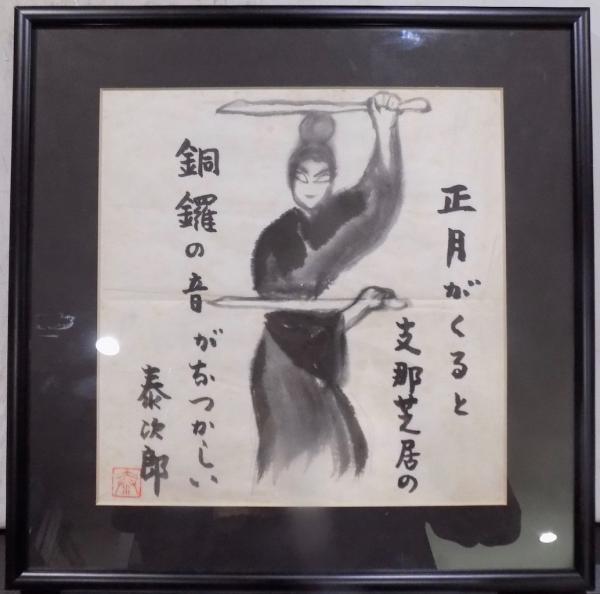 正月がくると
支那芝居の
銅鑼の音がなつかしい
泰次郎